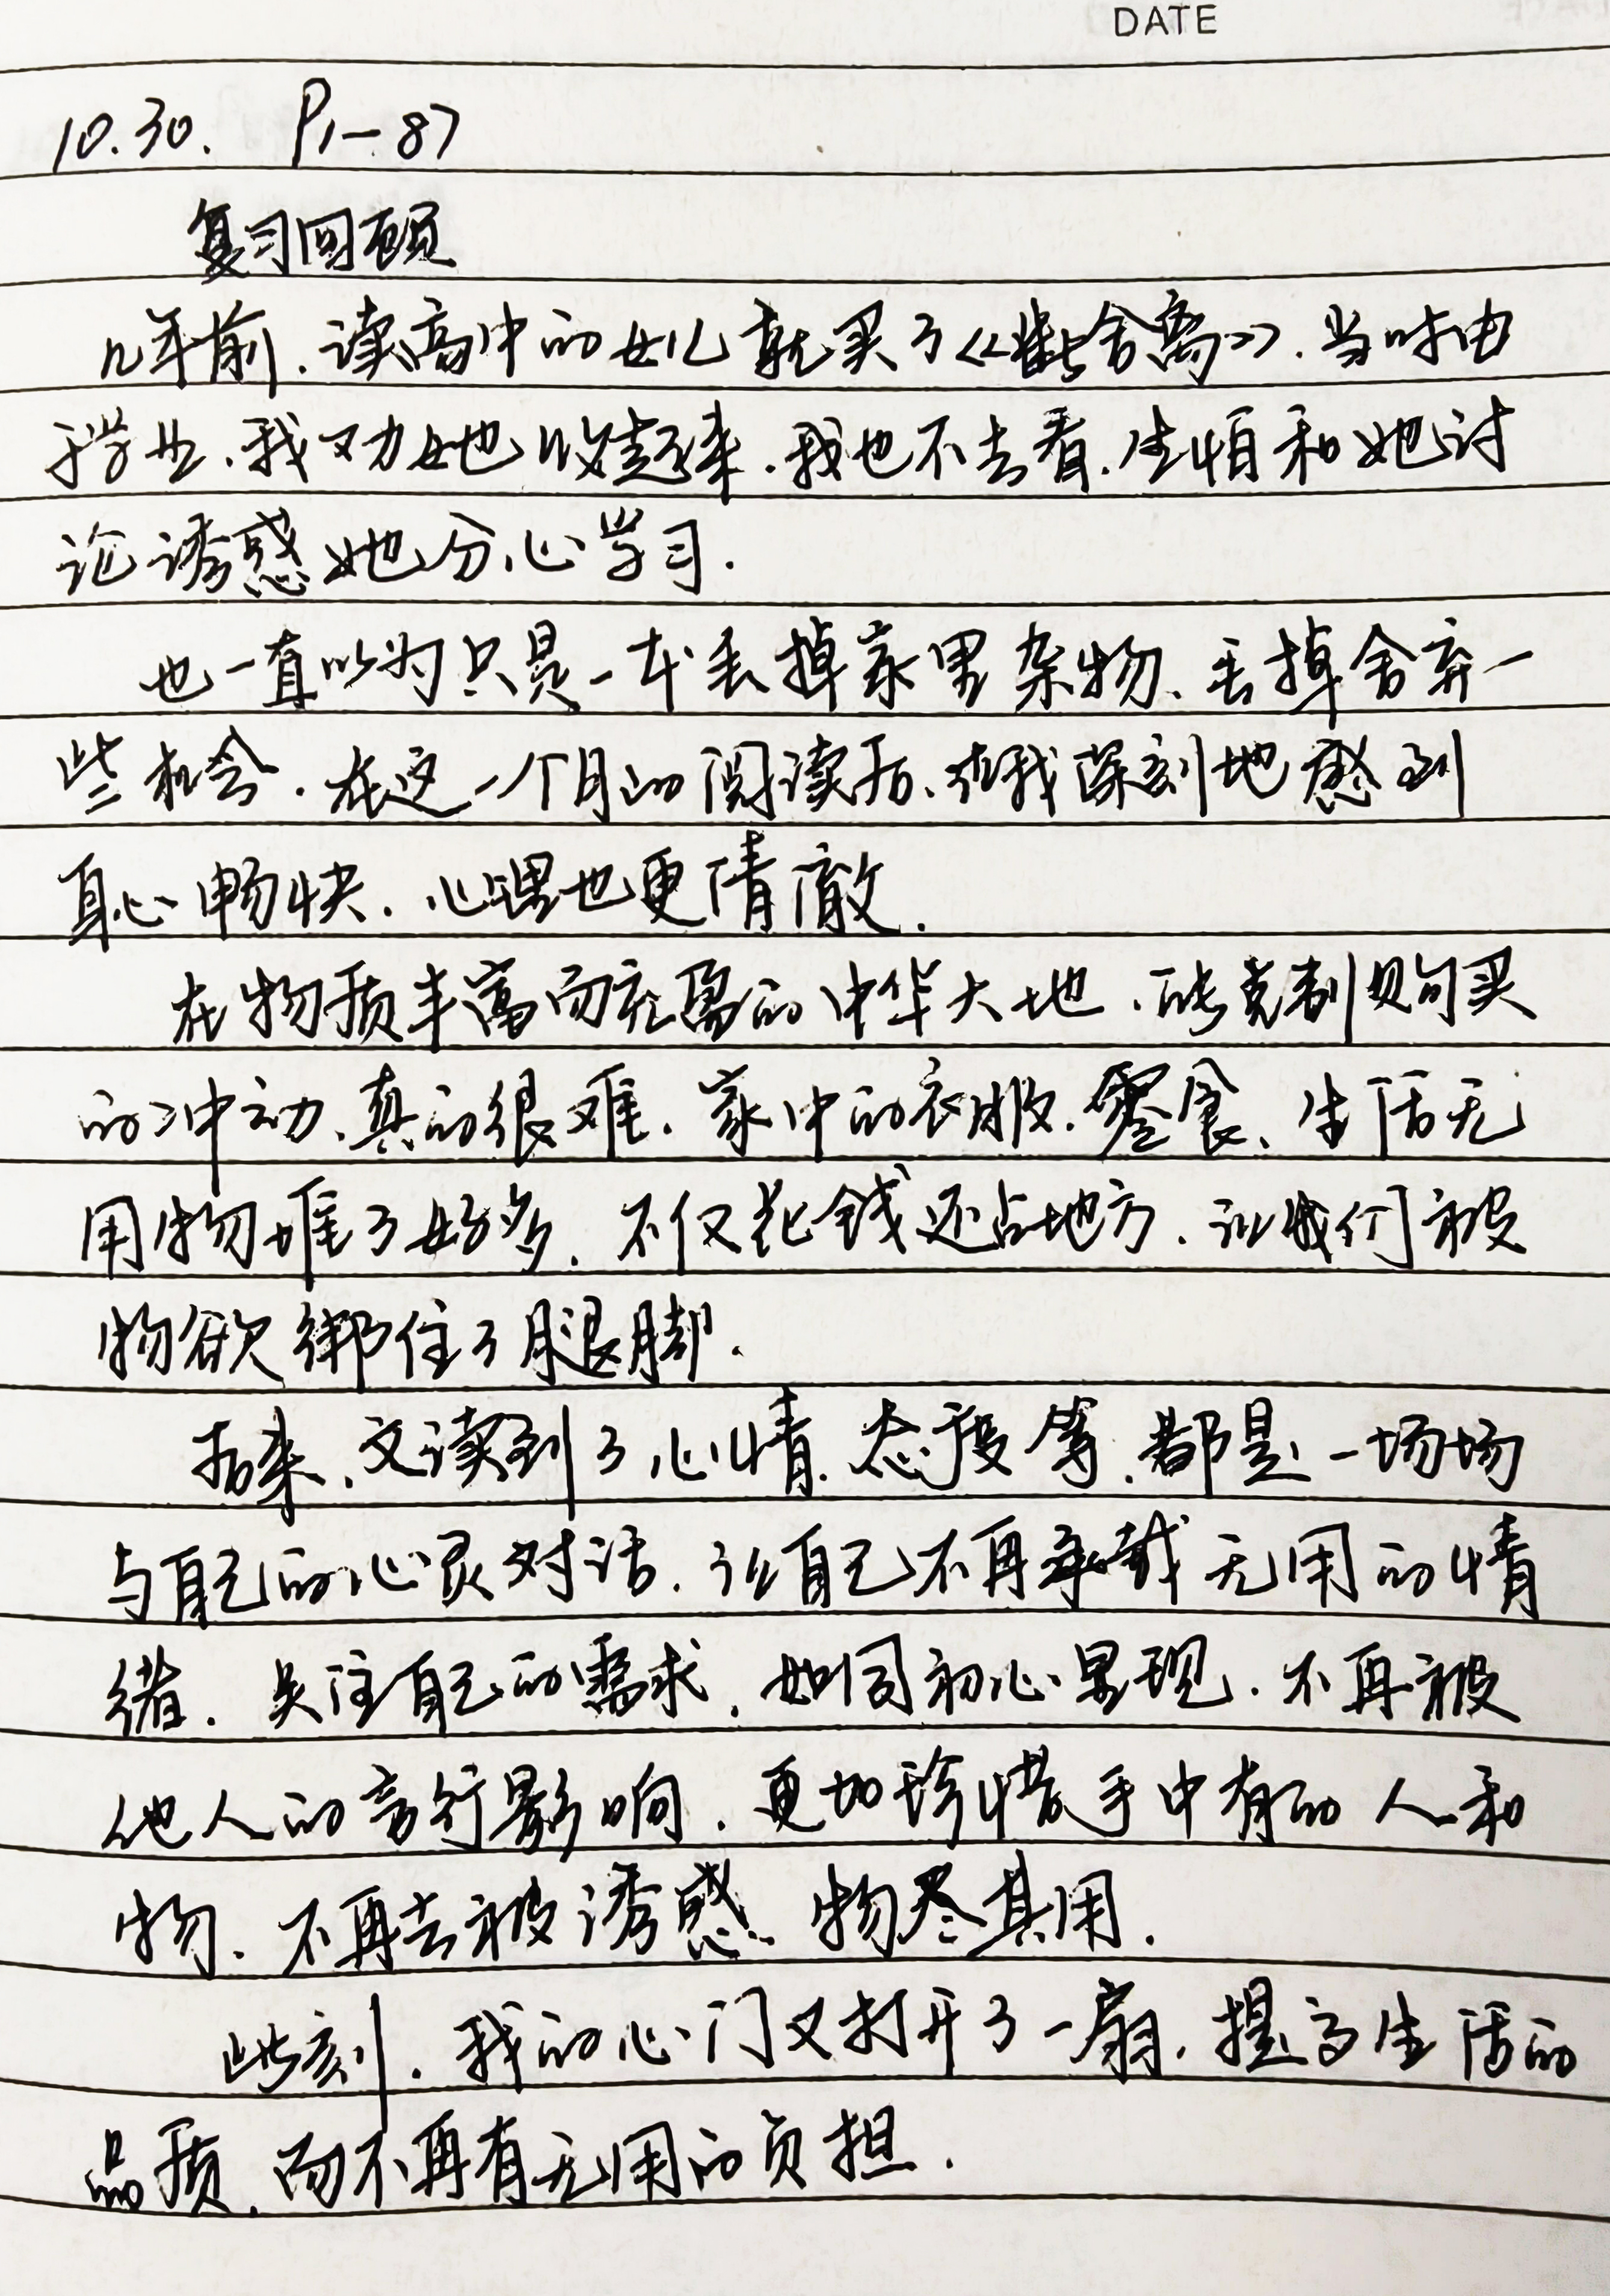 DATE
10.30. P1-87
复习回顾
几年前.读高中的女儿就买了《断舍离》.当时由
于学业、我又劝她收起来.我也不去看.生怕和她讨
论诱惑她分心学习.
也一直以为只是一本丢掉家里杂物、丢掉舍弃一
些机会.在这一个月的阅读后、让我深刻地感到
身心畅快.心里也更清澈.
在物质丰富而充盈的中华大地.能克制购买
的冲动、真的很难.家中的衣服.零食、生活无
用物堆了好多.不仅花钱还占地方.让我们被
物欲绑住了腿脚.
后来、又读到了心情.态度等.都是一场场
与自己的心灵对话.让自己不再承载无用的情
绪.关注自己的需求.如同初心呈现.不再被
他人的言行影响.更加珍惜手中有的人和
物.不再去被诱惑、物尽其用.
此刻.我的心门又打开了一扇.提高生活的
品质.而不再有无用的负担.